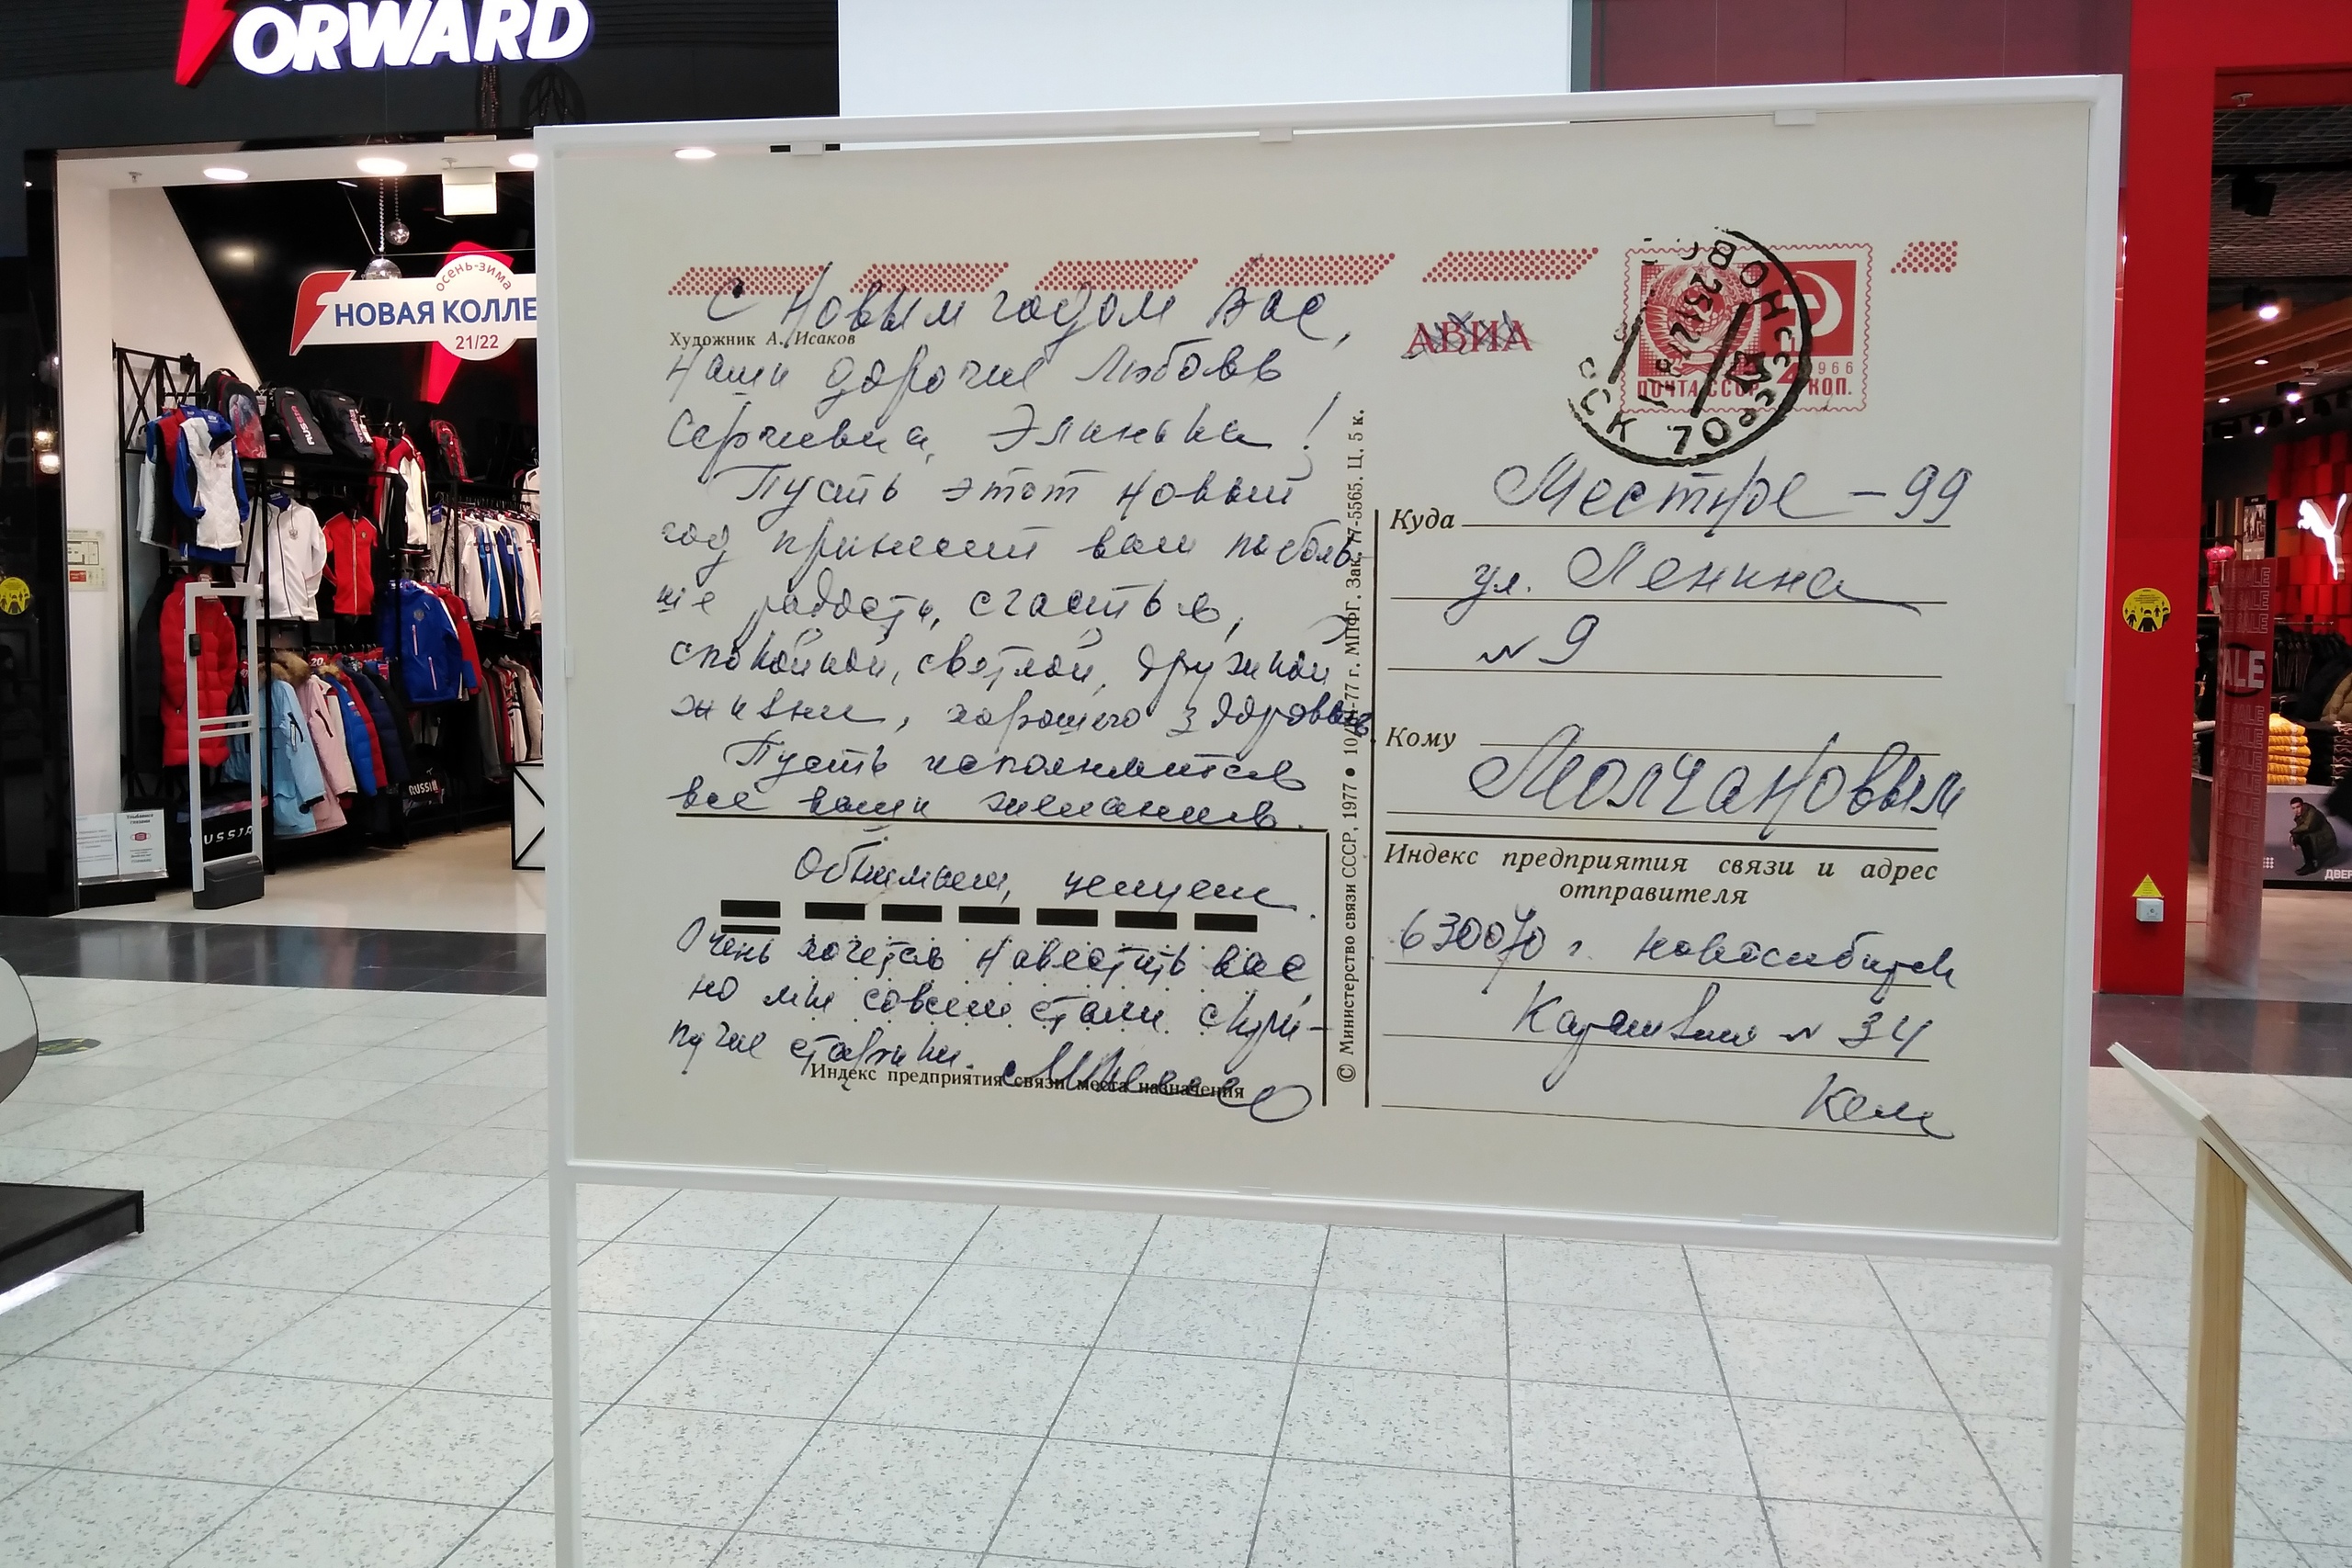 ORWARD
осень-зима
НОВАЯ КОЛЛЕ
21/22
RUSSIA
С Новым годом вас,
Художник А. Исаков
Наши дорогие Любовь
Сергеевна, Элинька!
Пусть этот новый
год принесет вам поболь-
ше радости, счастья,
спокойной, светлой, дружной
жизни, хорошего здоровья.
Пусть исполнится
все ваши желания.
Обнимаем, целуем.
Очень хочется навестить вас,
но мы совсем стали скри-
пучие старики.
Индекс предприятия связи места назначения
© Министерство связи СССР, 1977 • 10/ -77 г. МПФГ. Зак. 77-5565. Ц. 5 к.
АВИА
ПОЧТА СССР 4 КОП.
1966
Куда Местное - 99
ул. Ленина
№ 9
Кому
Молчановым
Индекс предприятия связи и адрес
отправителя
630070 г. Новосибирск
№ 34
Кем
SALE
ALE
ДВЕР